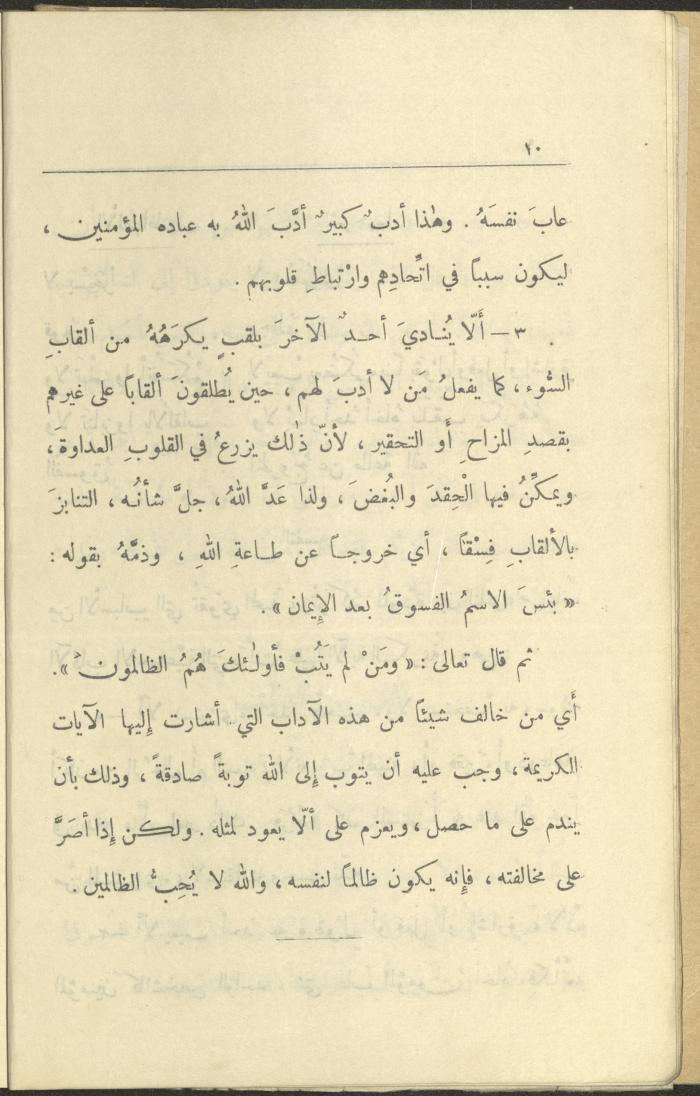 ١٠
عابَ نفسَهُ . وهٰذا أدبٌ كبيرٌ أدَّبَ اللهُ به عباده المؤمنين ،
ليكون سبباً في اتِّحادِهم وارْتباطِ قلوبهم .
٣ — أَلّا يُنادِيَ أحدٌ الآخرَ بلقبٍ يكرَهُهُ من ألقابِ
السُّوء ، كما يفعلُ مَن لا أدبَ لهم ، حين يُطلقونَ ألقاباً على غيرهم
بقصدِ المزاحِ أَو التحقير ، لأنّ ذٰلك يزرعُ في القلوبِ العداوة ،
ويمكِّنُ فيها الْحِقدَ والبُغضَ ، ولذا عَدَّ اللهُ ، جلَّ شأنُه ، التنابزَ
بالألقابِ فِسْقاً ، أي خروجاً عن طاعةِ اللهِ ، وذمَّهُ بقوله :
« بئسَ الاسمُ الفسوقُ بعد الإِيمان » .
ثم قال تعالى : « ومَنْ لم يَتُبْ فأولٰئكَ هُمُ الظالمون َ» .
أَي من خالف شيئاً من هذه الآداب التي أشارت إِليها الآيات
الكريمة ، وجب عليه أن يتوب إِلى الله توبةً صادقةً ، وذلك بأن
يندم على ما حصل ، ويعزم على ألّا يعود لمثله . ولكن إِذا أصَرَّ
على مخالفته ، فإِنه يكون ظالماً لنفسه ، والله لا يُحِبُّ الظالمين .